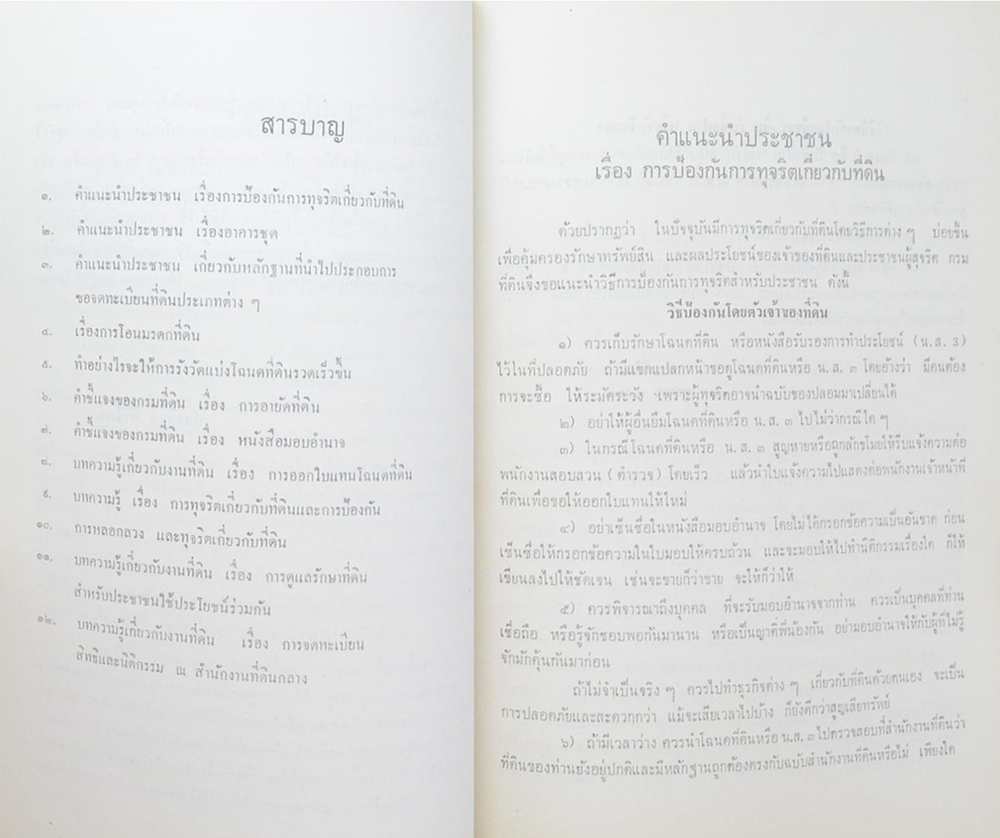 สารบาญ
๑. คำแนะนำประชาชน เรื่องการป้องกันการทุจริตเกี่ยวกับที่ดิน
๒. คำแนะนำประชาชน เรื่องอาคารชุด
๓. คำแนะนำประชาชน เกี่ยวกับหลักฐานที่นำไปประกอบการ
ขอจดทะเบียนที่ดินประเภทต่าง ๆ
๔. เรื่องการโอนมรดกที่ดิน
๕. ทำอย่างไรจะให้การรังวัดแบ่งโฉนดที่ดินรวดเร็วขึ้น
๖. คำชี้แจงของกรมที่ดิน เรื่อง การอายัดที่ดิน
๗. คำชี้แจงของกรมที่ดิน เรื่อง หนังสือมอบอำนาจ
๘. บทความรู้เกี่ยวกับงานที่ดิน เรื่อง การออกใบแทนโฉนดที่ดิน
๙. บทความรู้ เรื่อง การทุจริตเกี่ยวกับที่ดินและการป้องกัน
๑๐. การหลอกลวง และทุจริตเกี่ยวกับที่ดิน
๑๑. บทความรู้เกี่ยวกับงานที่ดิน เรื่อง การดูแลรักษาที่ดิน
สำหรับประชาชนใช้ประโยชน์ร่วมกัน
๑๒. บทความรู้เกี่ยวกับงานที่ดิน เรื่อง การจดทะเบียน
สิทธิและนิติกรรม ณ สำนักงานที่ดินกลาง
คำแนะนำประชาชน
เรื่อง การป้องกันการทุจริตเกี่ยวกับที่ดิน
ด้วยปรากฏว่า ในปัจจุบันมีการทุจริตเกี่ยวกับที่ดินโดยวิธีการต่าง ๆ บ่อยขึ้น
เพื่อคุ้มครองรักษาทรัพย์สิน และผลประโยชน์ของเจ้าของที่ดินและประชาชนผู้สุจริต กรม
ที่ดินจึงขอแนะนำวิธีการป้องกันการทุจริตสำหรับประชาชน ดังนี้
วิธีป้องกันโดยตัวเจ้าของที่ดิน
๑) ควรเก็บรักษาโฉนดที่ดิน หรือหนังสือรับรองการทำประโยชน์ (น.ส. ๓)
ไว้ในที่ปลอดภัย ถ้ามีแขกแปลกหน้าขอดูโฉนดที่ดินหรือ น.ส. ๓ โดยอ้างว่า มีคนต้อง
การจะซื้อ ให้ระมัดระวัง เพราะผู้ทุจริตอาจนำฉบับของปลอมมาเปลี่ยนได้
๒) อย่าให้ผู้อื่นยืมโฉนดที่ดินหรือ น.ส. ๓ ไปไม่ว่ากรณีใด ๆ
๓) ในกรณีโฉนดที่ดินหรือ น.ส. ๓ สูญหายหรือถูกลักขโมยให้รีบแจ้งความต่อ
พนักงานสอบสวน (ตำรวจ) โดยเร็ว แล้วนำใบแจ้งความไปแสดงต่อพนักงานเจ้าหน้าที่
ที่ดินเพื่อขอให้ออกใบแทนให้ใหม่
๔) อย่าเซ็นชื่อในหนังสือมอบอำนาจ โดยไม่ได้กรอกข้อความเป็นอันขาด ก่อน
เซ็นชื่อให้กรอกข้อความในใบมอบให้ครบถ้วน และจะมอบให้ไปทำนิติกรรมเรื่องใด ก็ให้
เขียนลงไปให้ชัดเจน เช่นจะขายก็ว่าขาย จะให้ก็ว่าให้
๕) ควรพิจารณาถึงบุคคล ที่จะรับมอบอำนาจจากท่าน ควรเป็นบุคคลที่ท่าน
เชื่อถือ หรือรู้จักชอบพอกันมานาน หรือเป็นญาติพี่น้องกัน อย่ามอบอำนาจให้กับผู้ที่ไม่รู้
จักมักคุ้นกันมาก่อน
ถ้าไม่จำเป็นจริง ๆ ควรไปทำธุรกิจต่าง ๆ เกี่ยวกับที่ดินด้วยตนเอง จะเป็น
การปลอดภัยและสะดวกกว่า แม้จะเสียเวลาไปบ้าง ก็ยังดีกว่าสูญเสียทรัพย์
๖) ถ้ามีเวลาว่าง ควรนำโฉนดที่ดินหรือ น.ส. ๓ ไปตรวจสอบที่สำนักงานที่ดินว่า
ที่ดินของท่านยังอยู่ปกติและมีหลักฐานถูกต้องตรงกับฉบับสำนักงานที่ดินหรือไม่ เพียงใด